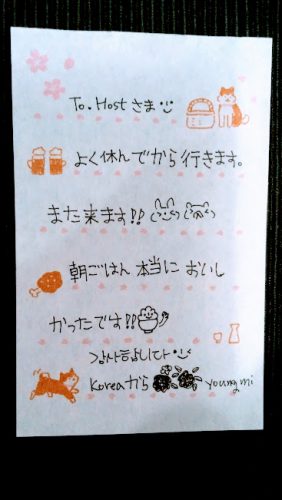 To. Host さま
よく休んでから行きます。
また来ます!!
朝ごはん 本当に おいし
かったです!!
감사합니다
Koreaから young mi